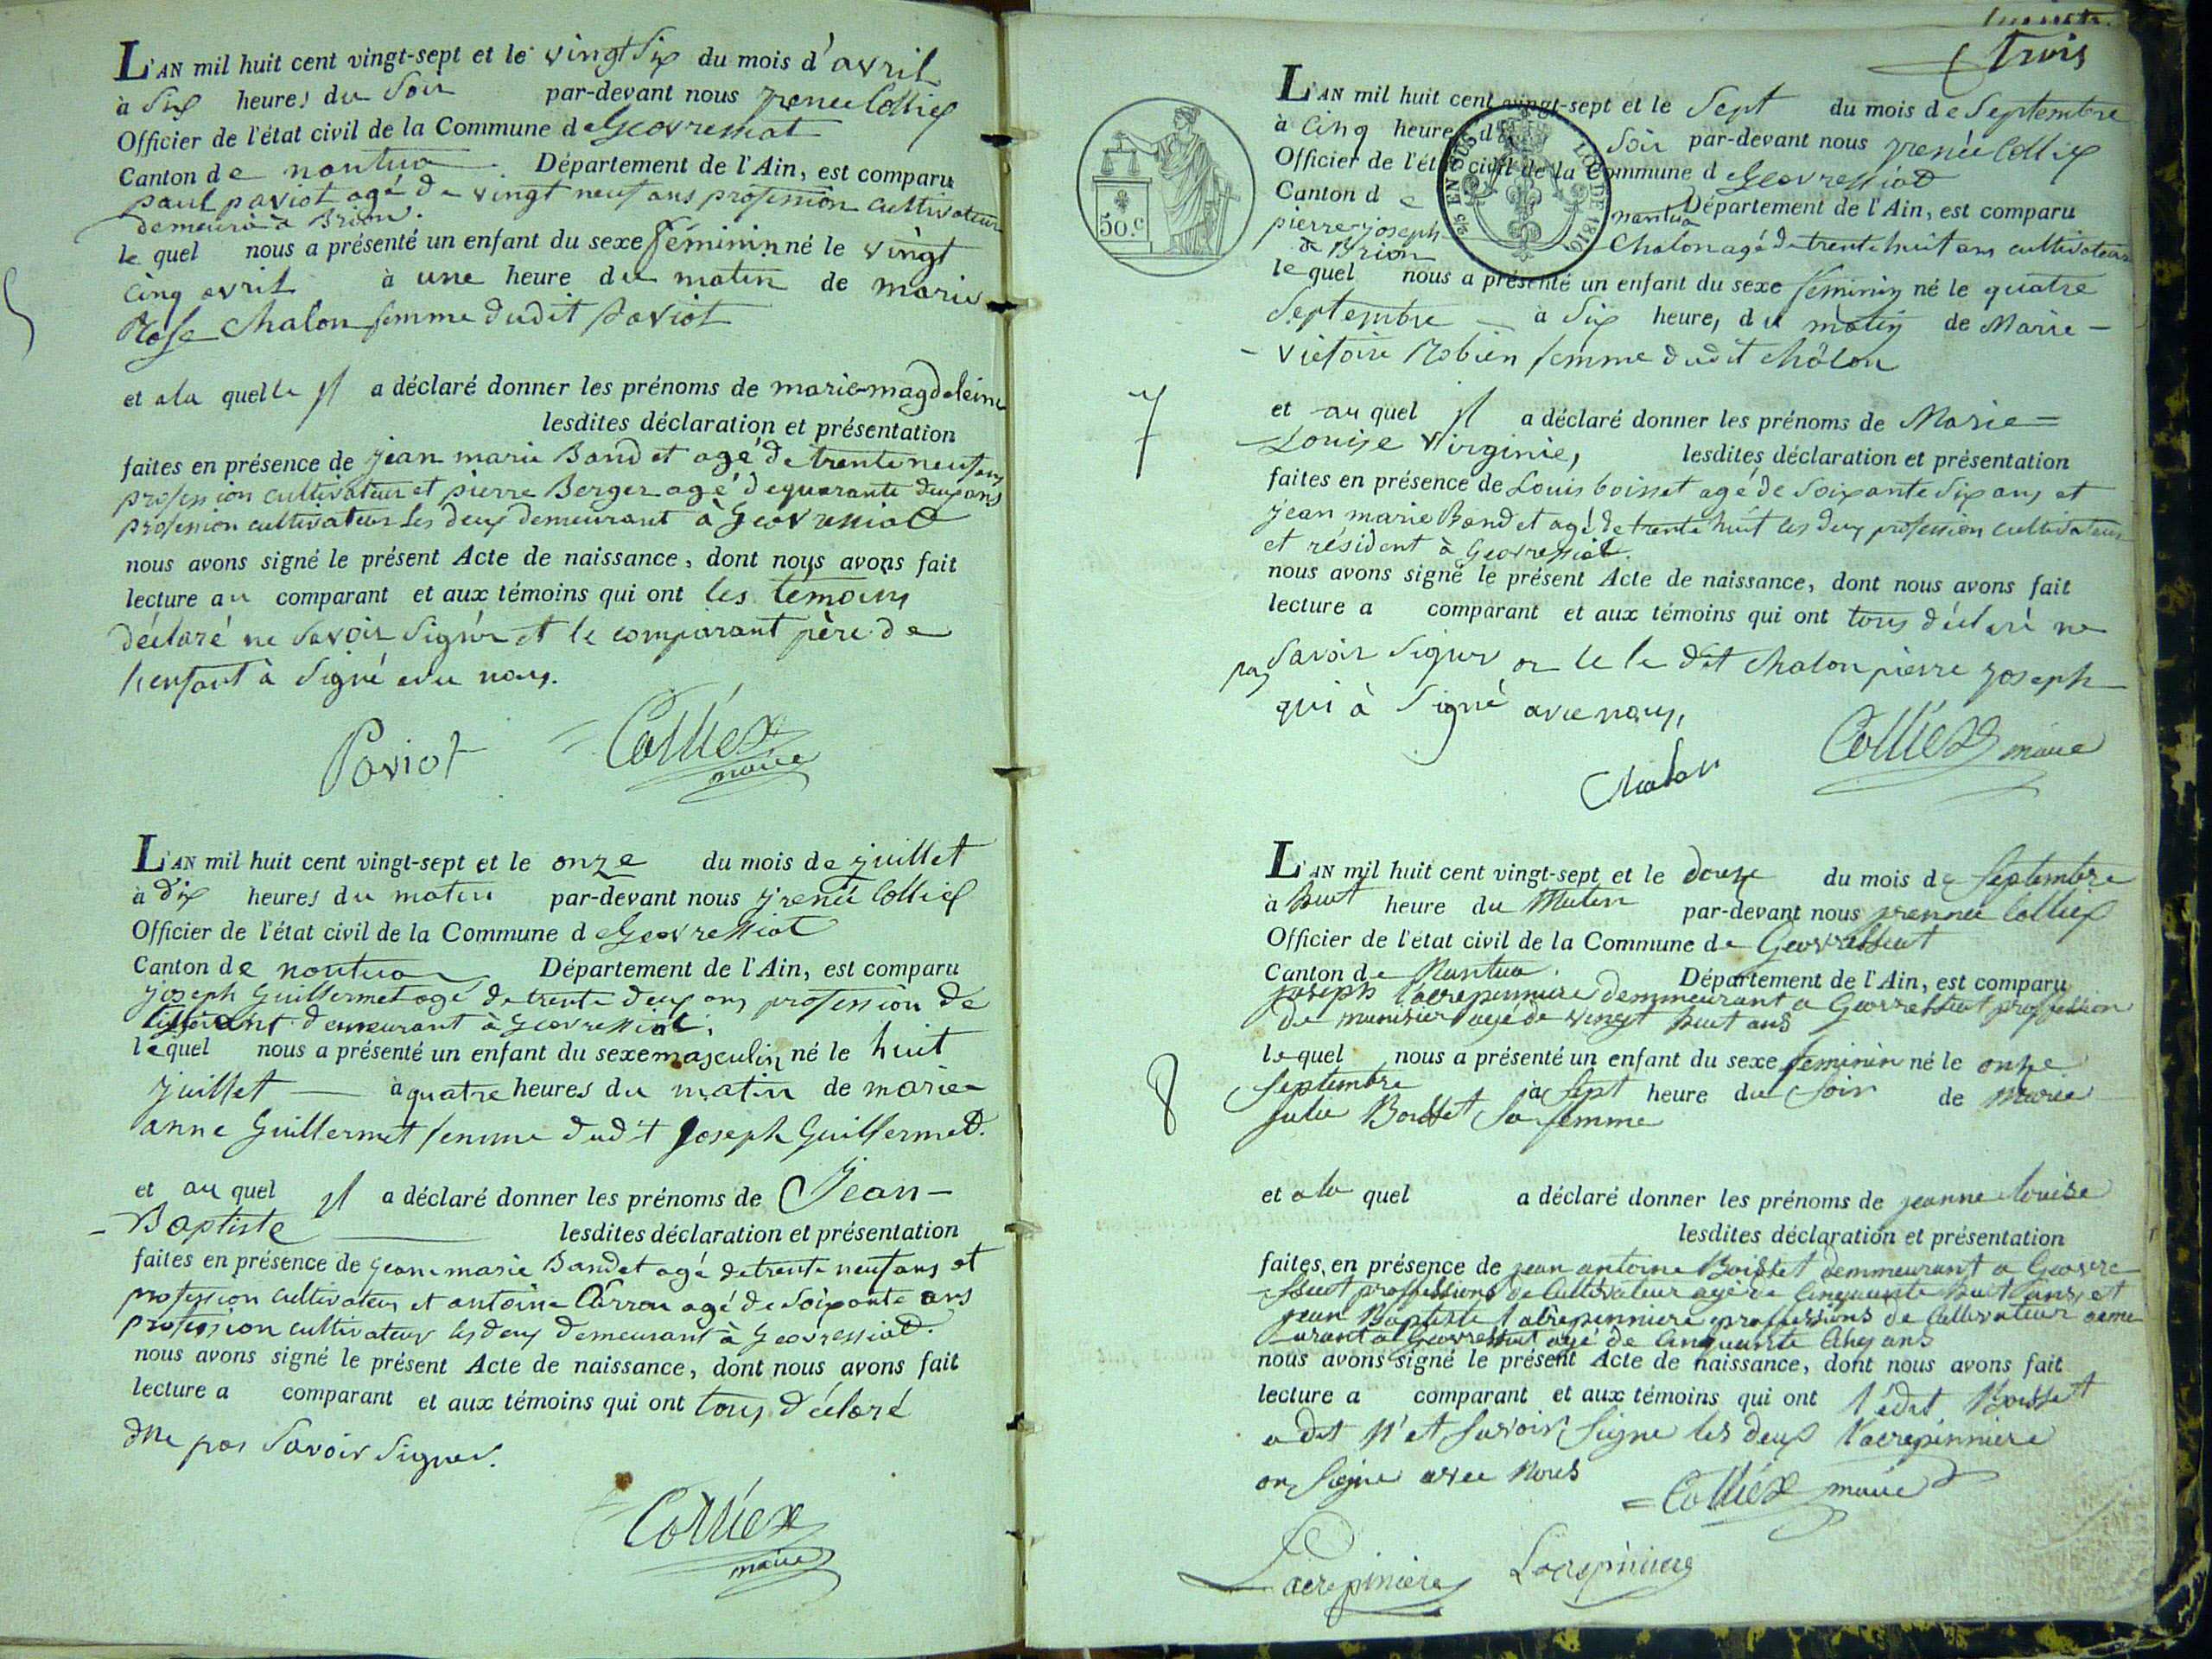 L'AN mil huit cent vingt-sept et le vingt Six du mois d'avril
à Six heures du Soir par-devant nous yrenée Colliex
Officier de l'état civil de la Commune de Geovressiat
Canton de nantua Département de l'Ain, est comparu
paul paviot agé de vingt neuf ans profession cultivateur
demeurà à Brion.
le quel nous a présenté un enfant du sexe féminin né le vingt
cinq avril à une heure du matin de marie
Rose Chalon femme dudit paviot
et a la quelle il a déclaré donner les prénoms de marie-magdeleine
lesdites déclaration et présentation
faites en présence de jean marie Bandet agé de trente neuf ans
profession cultivateur et pierre Berger agé de quarante deux ans
profession cultivateur les deux demeurant à Geovressiat
nous avons signé le présent Acte de naissance, dont nous avons fait
lecture au comparant et aux témoins qui ont les témoins
déclaré ne Savoir Signér et le comparant père de
l'enfant à Signé avec nous.
Paviot = Colliex
maire
L'AN mil huit cent vingt-sept et le onze du mois de juillet
à dix heures du matin par-devant nous yrenée Colliex
Officier de l'état civil de la Commune de Geovressiat
Canton de nantua Département de l'Ain, est comparu
joseph Guillermet agé de trente deux ans profession de
tisserant demeurant à Geovressiat.
le quel nous a présenté un enfant du sexe masculin né le huit
juillet — à quatre heures du matin de marie
anne Guillermet femme dudit Joseph Guillermet.
et au quel il a déclaré donner les prénoms de Jean-
-Baptiste lesdites déclaration et présentation
faites en présence de Jean marie Bandet agé de trente neuf ans et
profession cultivateur et antoine Carrau agé de Soixante ans
profession cultivateur les deux demeurant à Geovressiat.
nous avons signé le présent Acte de naissance, dont nous avons fait
lecture a comparant et aux témoins qui ont tous déclaré
ne pas Savoir Signer.
Colliex
maire
trois
L'AN mil huit cent vingt-sept et le Sept du mois de Septembre
à cinq heures du Soir par-devant nous yrenée Colliex
Officier de l'état civil de la Commune de Geovressiat
Canton de nantua Département de l'Ain, est comparu
pierre-joseph Chalon agé de trente huit ans cultivateur
de Brion
50.c
EN SUS LOI DE 1816
le quel nous a présenté un enfant du sexe féminin né le quatre
Septembre — à Six heures du matin de Marie-
-Victoire Robien femme dudit châlon
7
et au quel il a déclaré donner les prénoms de Marie=
Louise Virginie, lesdites déclaration et présentation
faites en présence de Louis boisset agé de Soixante Six ans et
jean marie Bandet agé de trente huit les deux profession cultivateur
et résident à Geovressiat.
nous avons signé le présent Acte de naissance, dont nous avons fait
lecture a comparant et aux témoins qui ont tous déclaré ne
pas Savoir Signer le dit chalon pierre joseph
qui à Signé avec nous,
Chalon Colliex maire
L'AN mil huit cent vingt-sept et le douze du mois de Septembre
à huit heure du Matin par-devant nous yrennée Colliex
Officier de l'état civil de la Commune de Geovressiat
Canton de Nantua. Département de l'Ain, est comparu
joseph Lacrepinniere demmeurant a Geovressiat proffession
de munisier agé de vingt huit ans
8
le quel nous a présenté un enfant du sexe feminin né le onze
Septembre à Sept heure du Soir de Marie
julie Boisset Sa femme
et a la quel a déclaré donner les prénoms de jeanne louise
lesdites déclaration et présentation
faites en présence de jean antoine Boisset demmeurant a Geovre-
-ssiat proffessions de Cultivateur agé de Cinquante huit ans, et
jean Baptiste lacrepenniere proffessions de Cultivateur deme
urant a Geovressiat agé de Cinquante Cinq ans
nous avons signé le présent Acte de naissance, dont nous avons fait
lecture a comparant et aux témoins qui ont l'édit Boisset
a dit n'et Savoir Signe les deux lacrepinniere
on Signe avec nous
= Colliex maire
Lacrepiniere Lacrepiniere